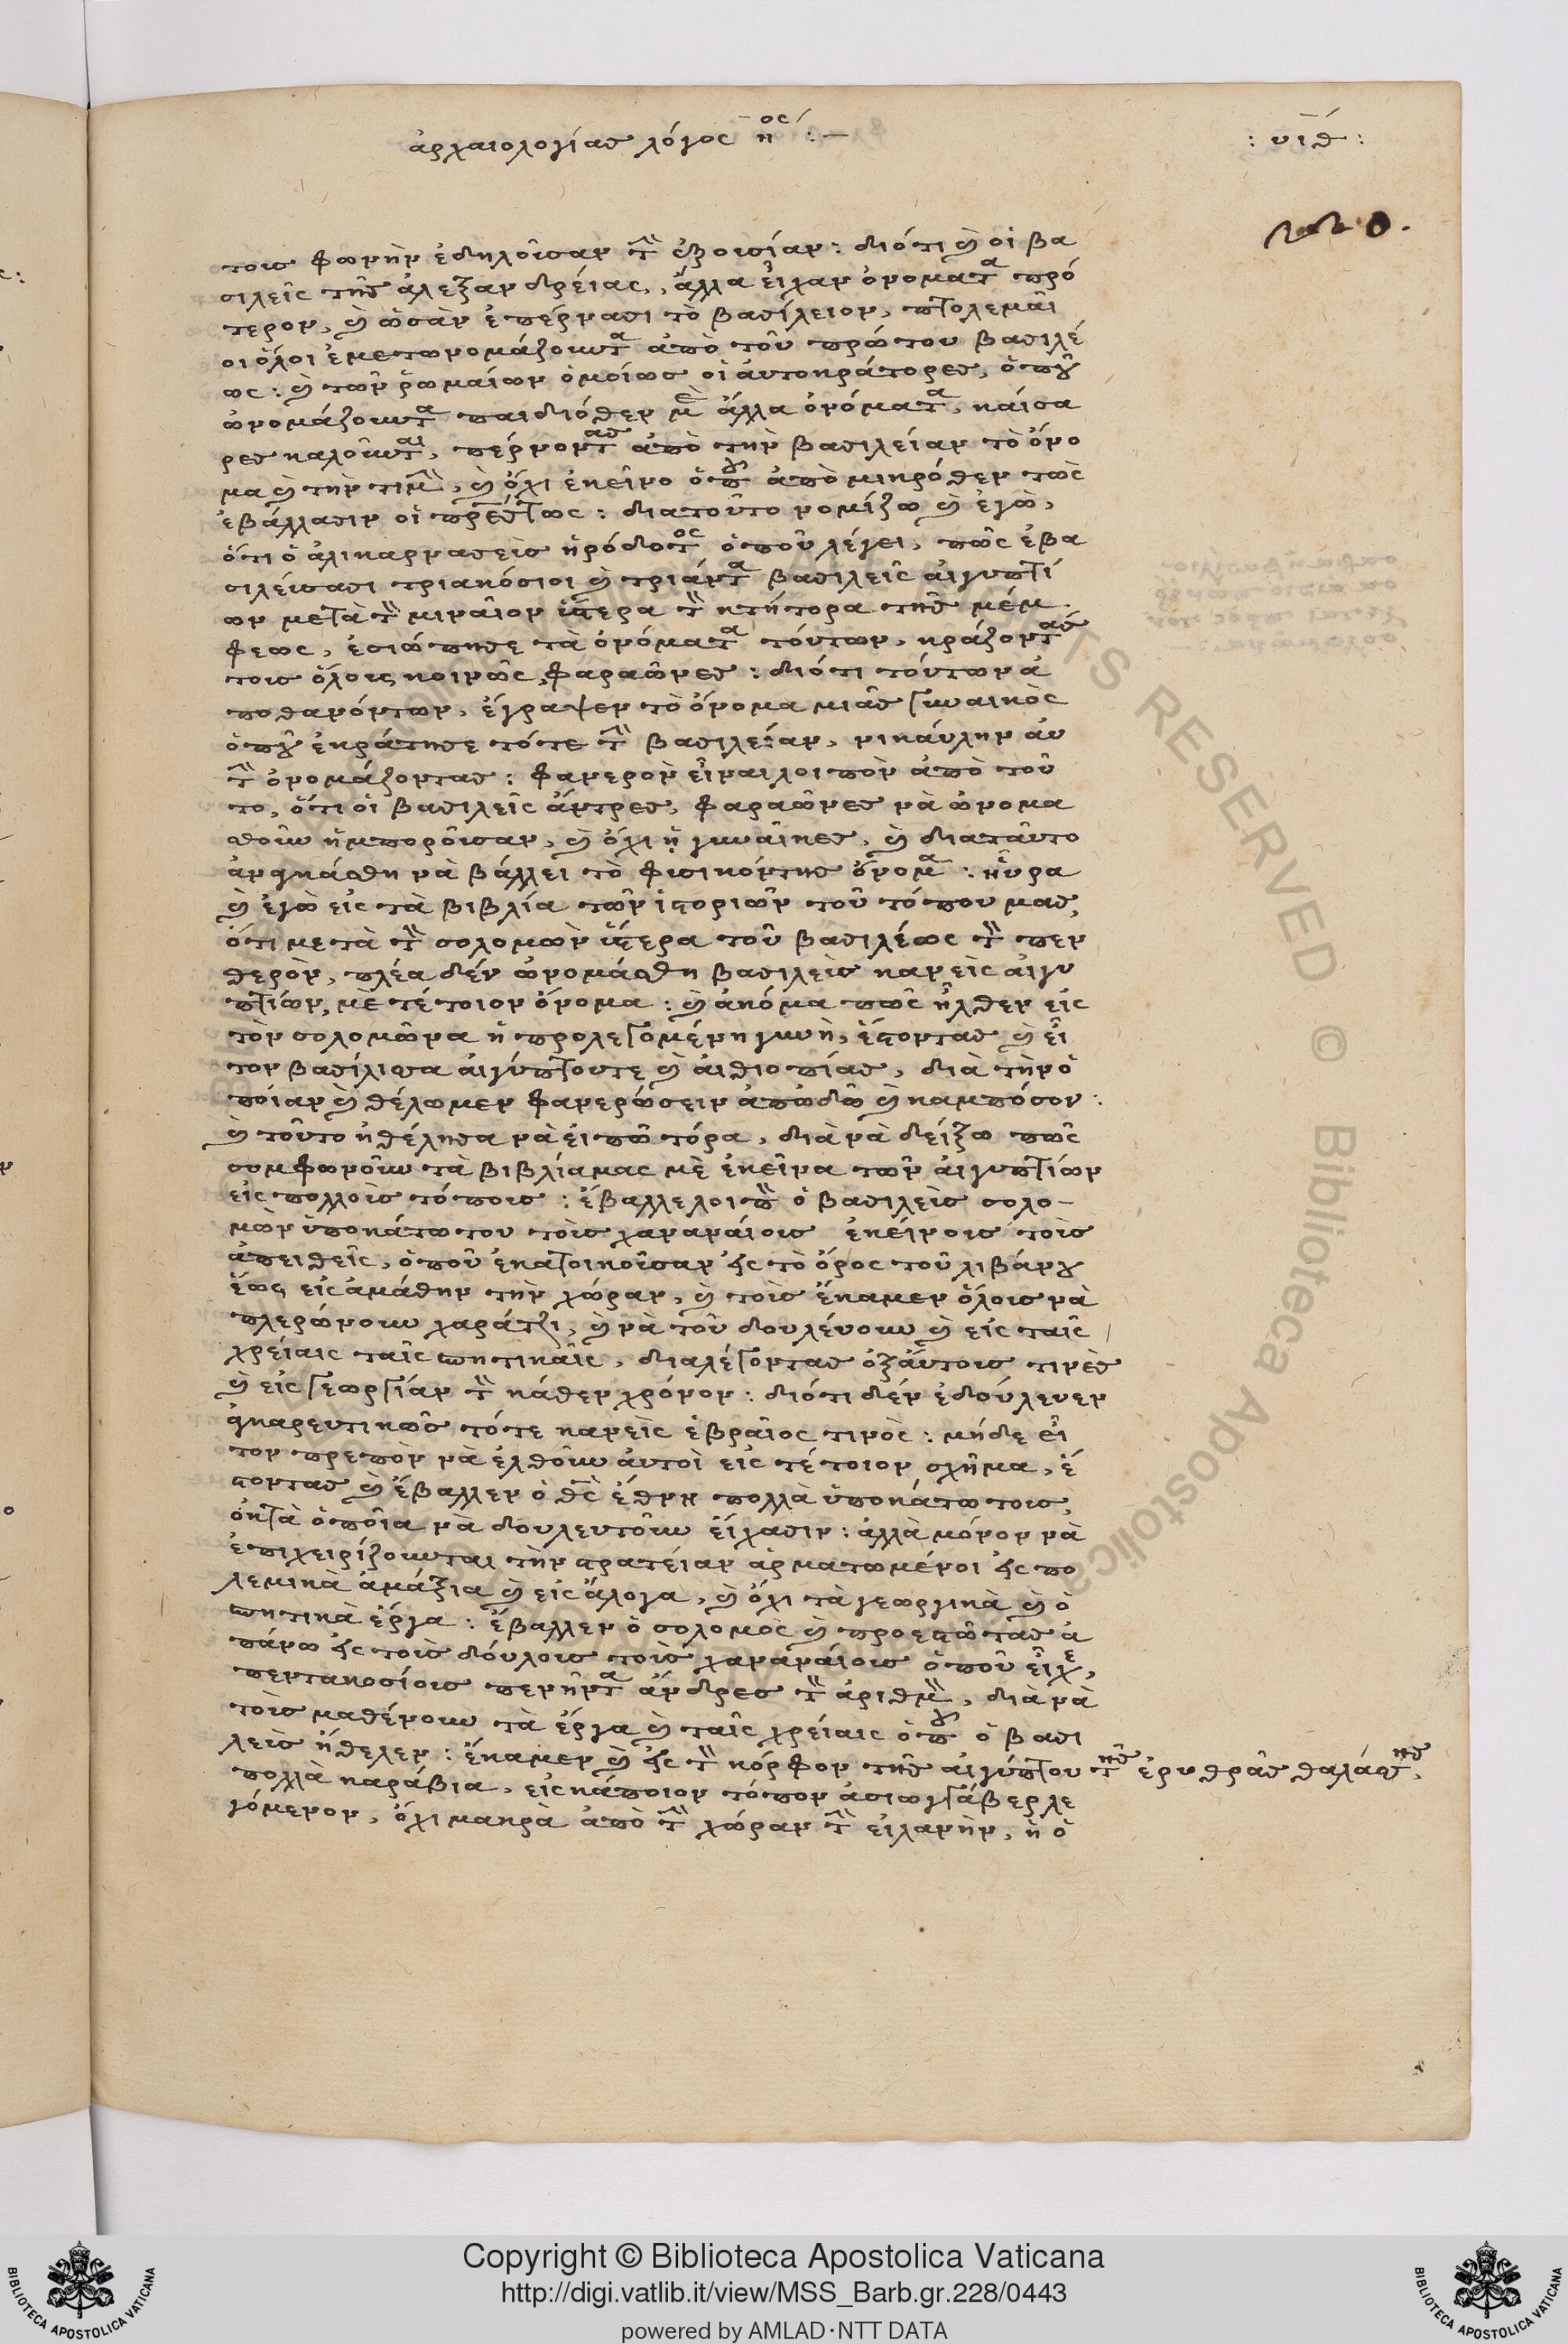 ἀρχαιολογίας λόγος η̄ος :—
: υιθ :
τους φωνὴν ἐδηλοῦσαν τὴν ἐξουσίαν : διότι καὶ οἱ βα
σιλεῖς τῆς ἀλεξανδρείας, ἄλλα εἶχαν ὀνοματα πρό
τερον, καὶ ὡσὰν ἐπέρνασι τὸ βασίλειον, πτολεμαῖ
οι ὅλοι ἐμετωνομάζουντα ἀπὸ τοῦ πρώτου βασιλέ
ως : καὶ τῶν ῥωμαίων ὁμοίως οἱ ἀυτοκράτορες, ὁποῦ
ὠνομάζουντα παιδιόθεν μὲ ἄλλα ὀνόματα, καίσα
ρες καλοῦνται, πέρνοντας ἀπὸ τὴν βασιλείαν τὸ ὄνο
μα καὶ τὴν τιμὴν, καὶ ὄχι ἐκεῖνο ὁποῦ ἀπὸ μικρόθεν τῶς
ἐβάλλασιν οἱ πρεστως : διατοῦτο νομίζω καὶ ἐγὼ,
ὅτι ὁ ἁλικαρνασεὺς ἡρόδοτος ὁποῦ λέγει, πῶς ἐβα
σιλεύσασι τριακόσιοι καὶ τριάντα βασιλεῖς ἀιγυπτί
ων μετὰ τὸν μιναῖον ὕστερα τὸν κτήτορα τῆς μέμ
φεως, ἐσιώπησε τὰ ὀνόματα τούτων, κράζοντας
τους ὅλους κοινῶς φαραῶνες : διότι τούτων ἀ
ποθανόντων, ἔγραψεν τὸ ὄνομα μιᾶς γυναικὸς
ὁποῦ ἐκράτησε τότε τὴν βασιλείαν, νικαύλην ἀυ
τὴν ὀνομάζοντας : φανερὸν εἶναι λοιπὸν ἀπὸ τοῦ
το, ὅτι οἱ βασιλεῖς ἄντρες, φαραῶνες νὰ ὠνομα
σθοῦν ἠμποροῦσαν, καὶ ὄχι ἡ γυναῖκες, καὶ διαταῦτο
ἀναγκάσθη νὰ βάλλει τὸ φυσικόντης ὄνομα : ηὗρα
καὶ ἐγὼ εἰς τὰ βιβλία τῶν ἱστοριῶν τοῦ τόπου μας,
ὅτι μετὰ τὸν σολομὼν ὕστερα τοῦ βασιλέως τὸν πεν
θερὸν, πλέα δὲν ὠνομάσθη βασιλεὺς κανεὶς ἀιγυ
πτίων, μὲ τέτοιον ὄνομα : καὶ ἀκόμα πῶς ἦλθεν εἰς
τὸν σολομῶνα ἡ προλεγομένη γυνὴ, ἔστοντας καὶ εἶ
τον βασίλισσα ἀιγύπτου τε καὶ ἀιθιοπίας, διὰ τὴν ὁ
ποίαν καὶ θέλομεν φανερώσειν ἀπωδῶ καὶ καμπόσον :
καὶ τοῦτο ἠθέλησα νὰ εἰπῶ τόρα, διὰ νὰ δείξω πῶς
συμφωνοῦν τὰ βιβλίαμας μὲ ἐκεῖνα τῶν ἀιγυπτίων
εἰς πολλοὺς τόπους : ἔβαλλε λοιπὸν ὁ βασιλεὺς σολο–
μὼν ὑποκάτω του τοὺς χαναναίους ἐκείνους τοὺς
ἀπειθεῖς, ὁποῦ ἐκατοικοῦσαν εἰς τὸ ὄρος τοῦ λιβάνου
ἕως εἰς ἀμάθην τὴν χώραν, καὶ τοὺς ἔκαμεν ὅλους νὰ
πλερώνουν χαράτζι, καὶ νὰ τοῦ δουλεύουν καὶ εἰς ταῖς
χρείαις ταῖς σπητικαῖς, διαλέγοντας ὀξἀυτους τινὲς
καὶ εἰς γεωργίαν τὸν κάθεν χρόνον : διότι δὲν ἐδούλευεν
σκλαβωτικῶς τότε κανεὶς ἑβραῖος τινὸς : μήδε εἶ
τον πρεπὸν νὰ ἐλθοῦν ἀυτοὶ εἰς τέτοιον σχῆμα, ἔ
στοντας καὶ ἔβαλλεν ὁ θεὸς ἔθνη πολλὰ ὑποκάτω τους,
ὀκτὰ ὁποῖα νὰ δουλευτοῦν εἴχασιν : ἀλλὰ μόνον νὰ
ἐπιχειρίζουνται τὴν στρατείαν ἁρματωμένοι εἰς πο
λεμικὰ ἁμάξια καὶ εἰς ἄλογα, καὶ ὄχι τὰ γεωργικὰ καὶ ὁ
σπητικὰ ἔργα : ἔβαλλεν ὁ σολομὸς καὶ προεστῶτας ἀ
πάνω εἰς τοὺς δούλους τοὺς χαναναίους ὁποῦ εἶχε,
πεντακοσίους πενῆντα ἄνδρες τὸν ἀριθμὸν, διὰ νὰ
τοὺς μαθένουν τὰ ἔργα καὶ ταῖς χρείαις ὁποῦ ὁ βασι
λεὺς ἤθελεν : ἔκαμεν καὶ εἰς τὸν κόρφον τῆς ἀιγύπτου τῆς ἐρυθρᾶς θαλάσσης,
πολλὰ καράβια, εἰς κάποιον τόπον ἀσιωγγάβερ λε
γόμενον, ὄχι μακρὰ ἀπὸ τὴν χώραν τὴν εἰλανὴν, ἡ ὁ
Copyright © Biblioteca Apostolica Vaticana
http://digi.vatlib.it/view/MSS_Barb.gr.228/0443
powered by AMLAD·NTT DATA